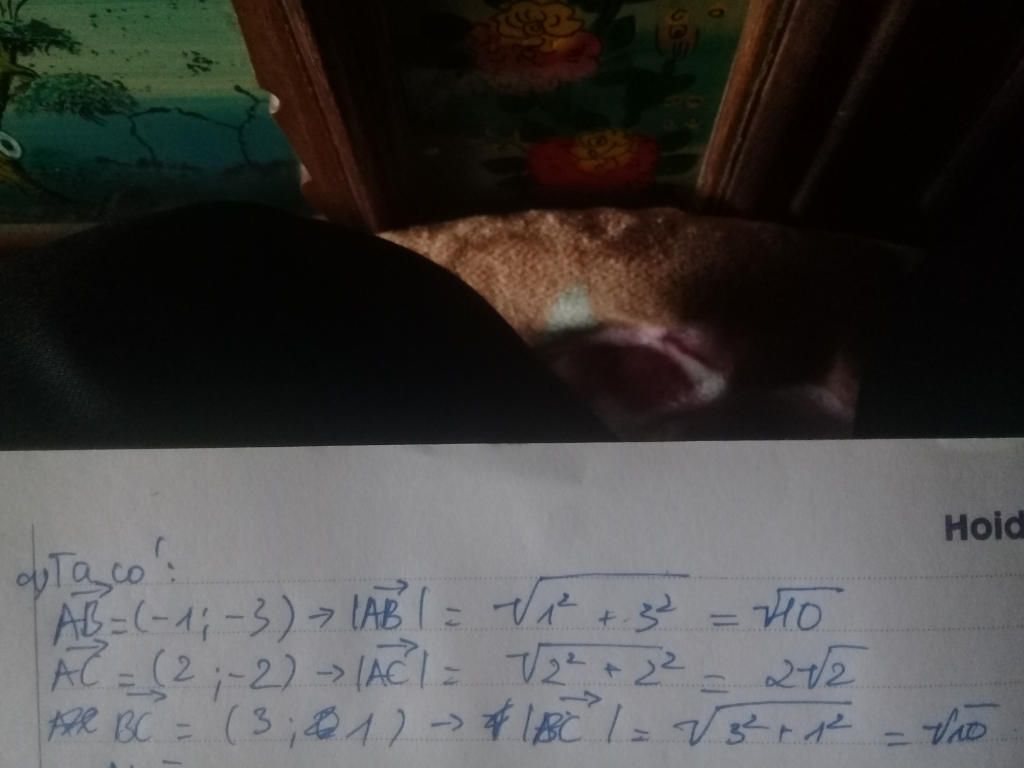 Hoid
a, Ta có:
\overrightarrow{AB} = (-1; -3) → |\overrightarrow{AB}| = √(1² + 3²) = √10
\overrightarrow{AC} = (2; -2) → |\overrightarrow{AC}| = √(2² + 2²) = 2√2
\overrightarrow{BC} = (3; 1) → |\overrightarrow{BC}| = √(3² + 1²) = √10